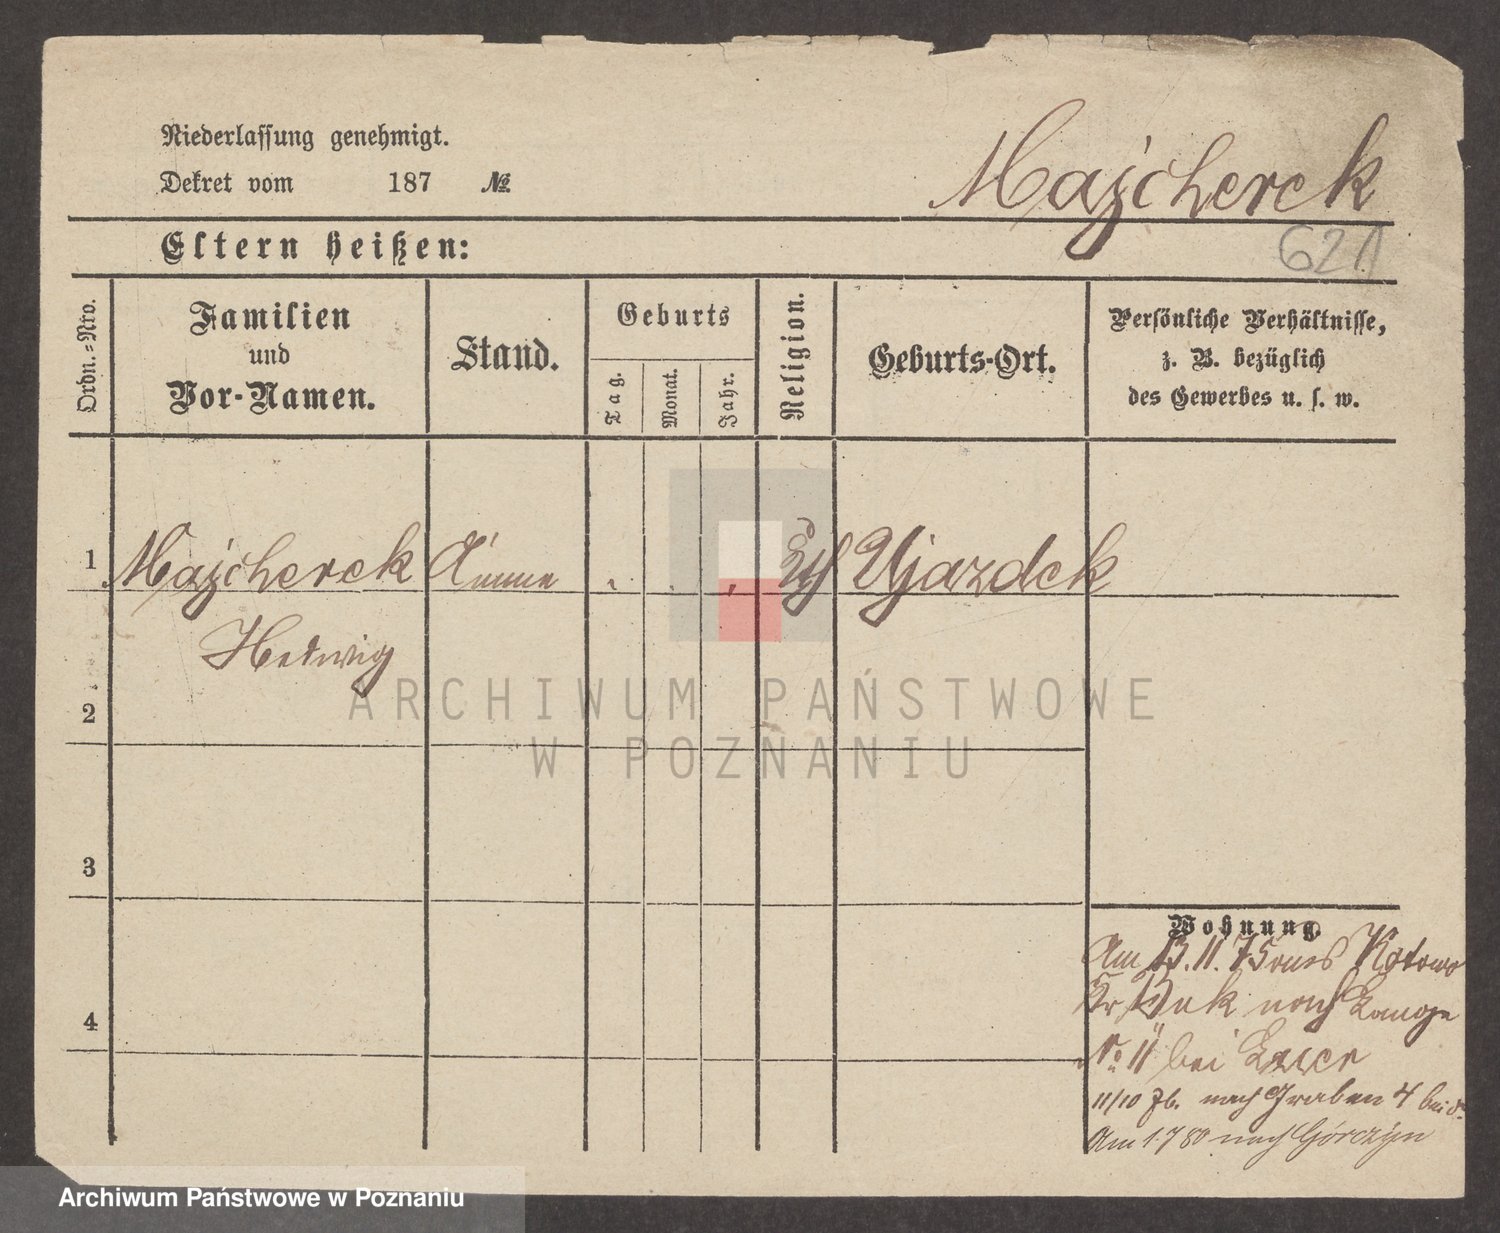 Niederlassung genehmigt.
Dekret vom 187 №
Majcherek
Eltern heißen:
621
Ordn.-Nro.
Familien
und
Vor-Namen.
Stand.
Geburts
Tag.
Monat.
Jahr.
Religion.
Geburts-Ort.
Persönliche Verhältnisse,
z. B. bezüglich
des Gewerbes u. s. w.
1 Majcherek Amme Kth Ujazdek
Hedwig
2
3
4
ARCHIWUM PAŃSTWOWE
W POZNANIU
Wohnung.
Am 13.11.75 aus Kotowo
Kr Buk nach Lange
No 11 bei
11/10 nach Graben 4 bei
Am 1.7 80 nach Górczyn
Archiwum Państwowe w Poznaniu